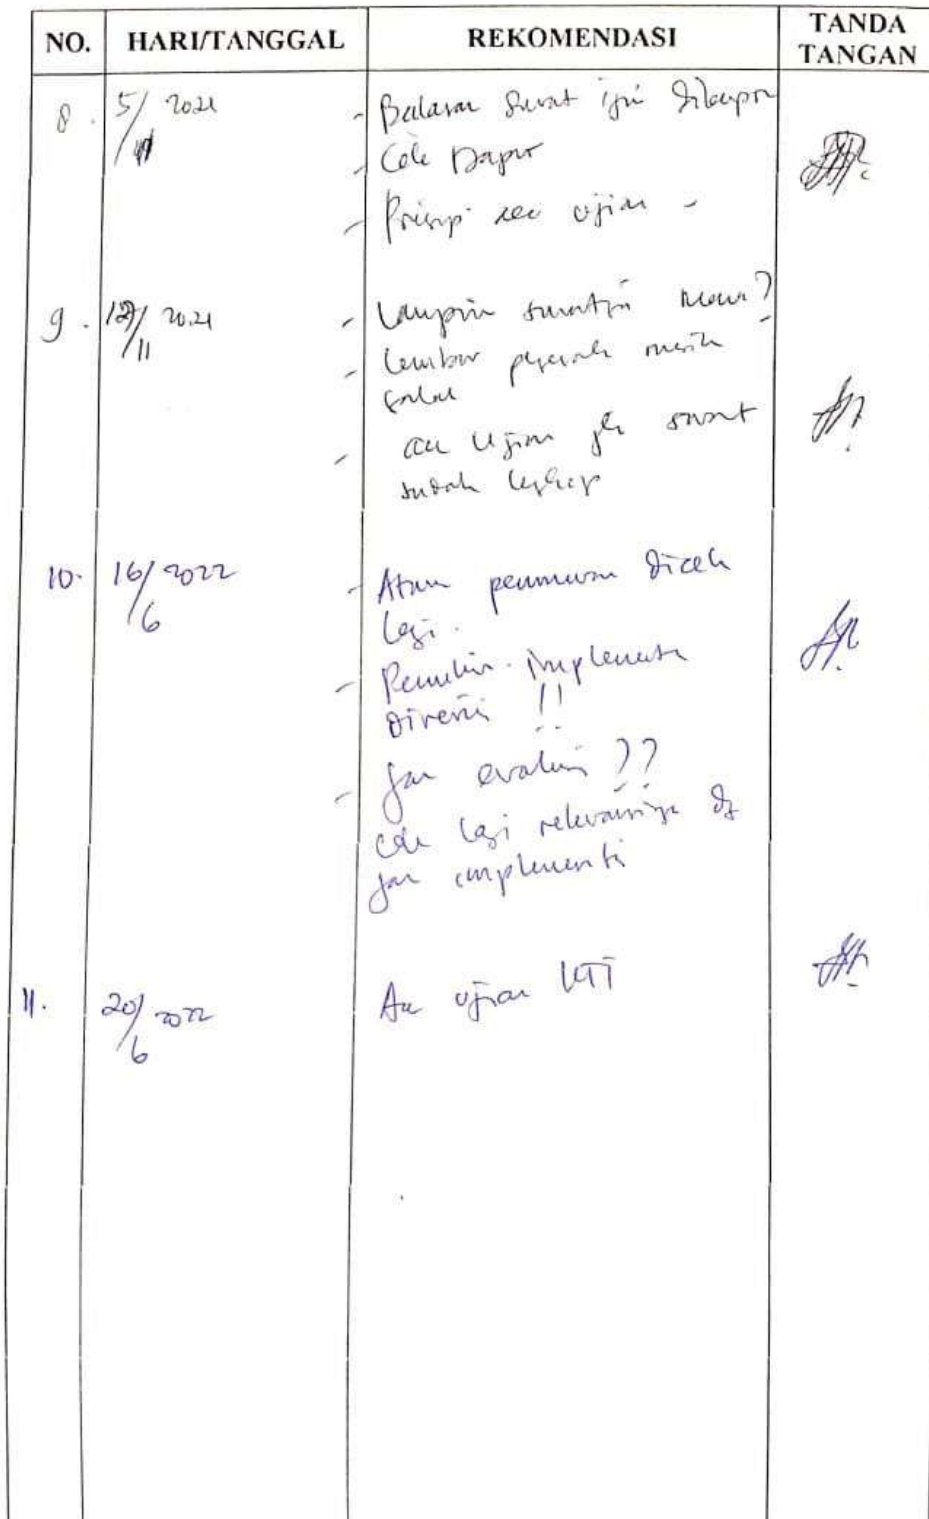 NO. HARI/TANGGAL REKOMENDASI TANDA TANGAN
8. 5/11 2021 - Balasan Surat ijin dilampir
- Cek Dapus
- Prinsip acc ujian -
9. 12/11 2021 - Lampiran surat ijin mana?
- Lembar pengesah masih
salah
- acc Ujian jk surat
sudah lengkap
10. 16/6 2022 - Aturan penomoran dicek
lagi.
- implementasi
direvisi !!
- evaluasi ??
cek lagi relevansinya dg
implementasi
11. 20/6 2022 Acc ujian KTI